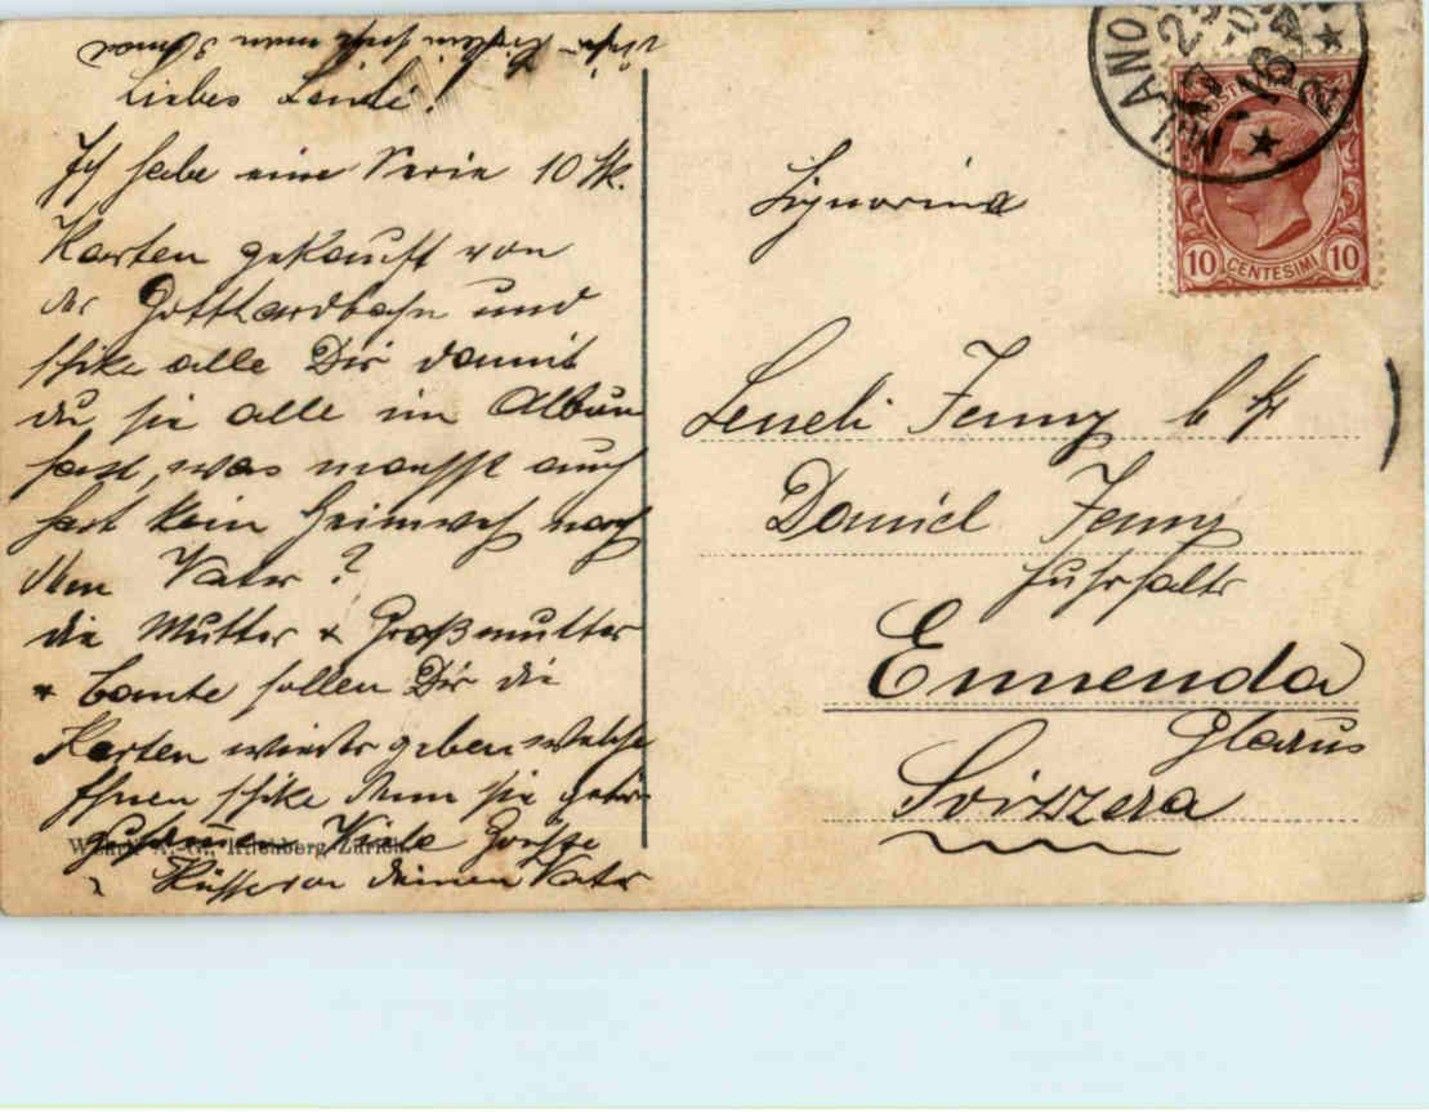 Liebes Leneli!
Ich habe eine Serie 10 Stk.
Karten gekauft von
der Gotthardbahn und
schike alle Dir damit
du sie alle im Album
hast, was machst auch
hast kein Heimweh nach
dem Vater?
die Mutter & Großmutter
& Tante sollen Dir die
Karten wieder geben welche
Ihnen schike denn sie
Viele Grüsse
Küsse von deinem Vater
MILANO
10 CENTESIMI 10
Signorina
Leneli Jenny b Hr
Daniel Jenny
Fuhrhalter
Ennenda
Glarus
Svizzera